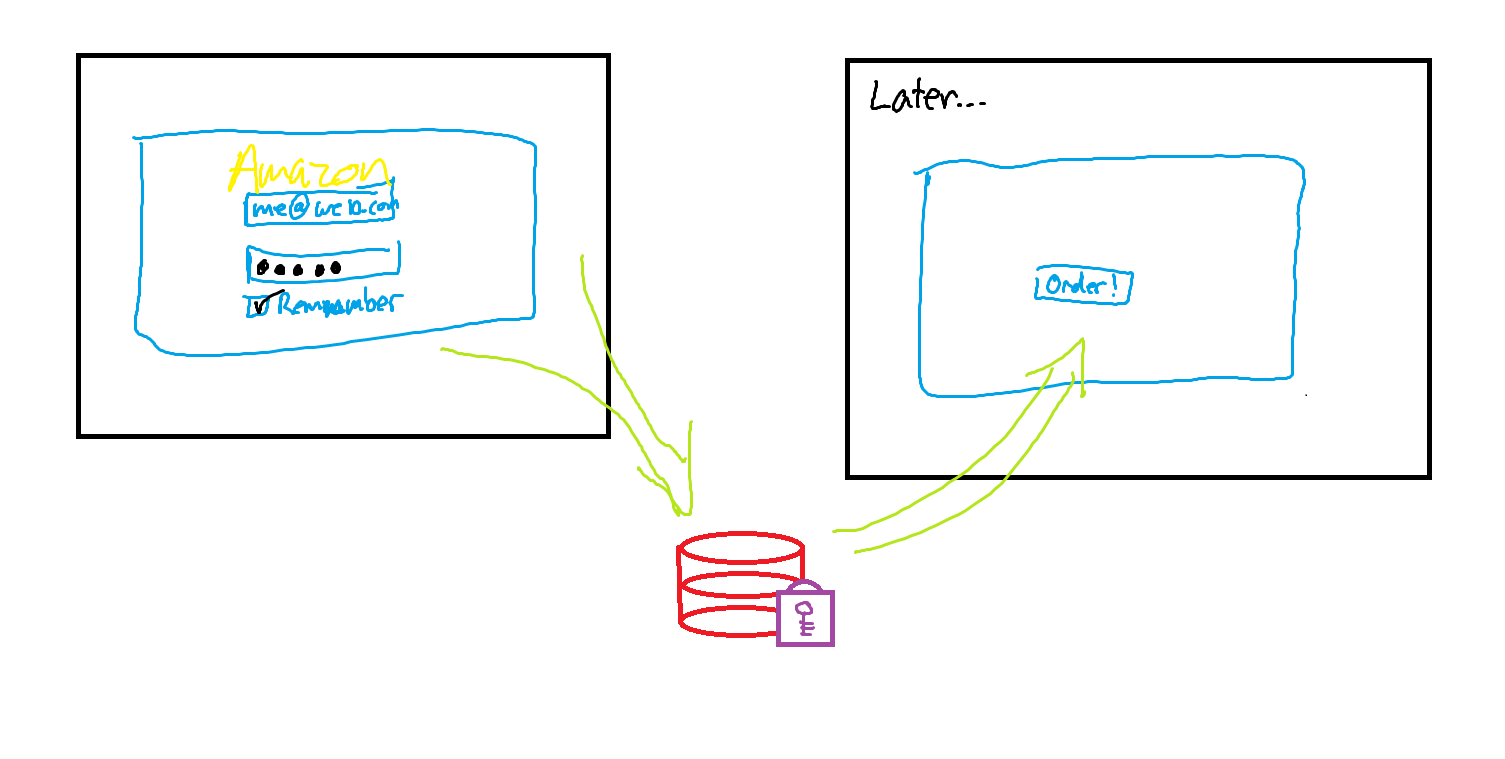 Amazon
me@web.com
Remember
Later...
Order!